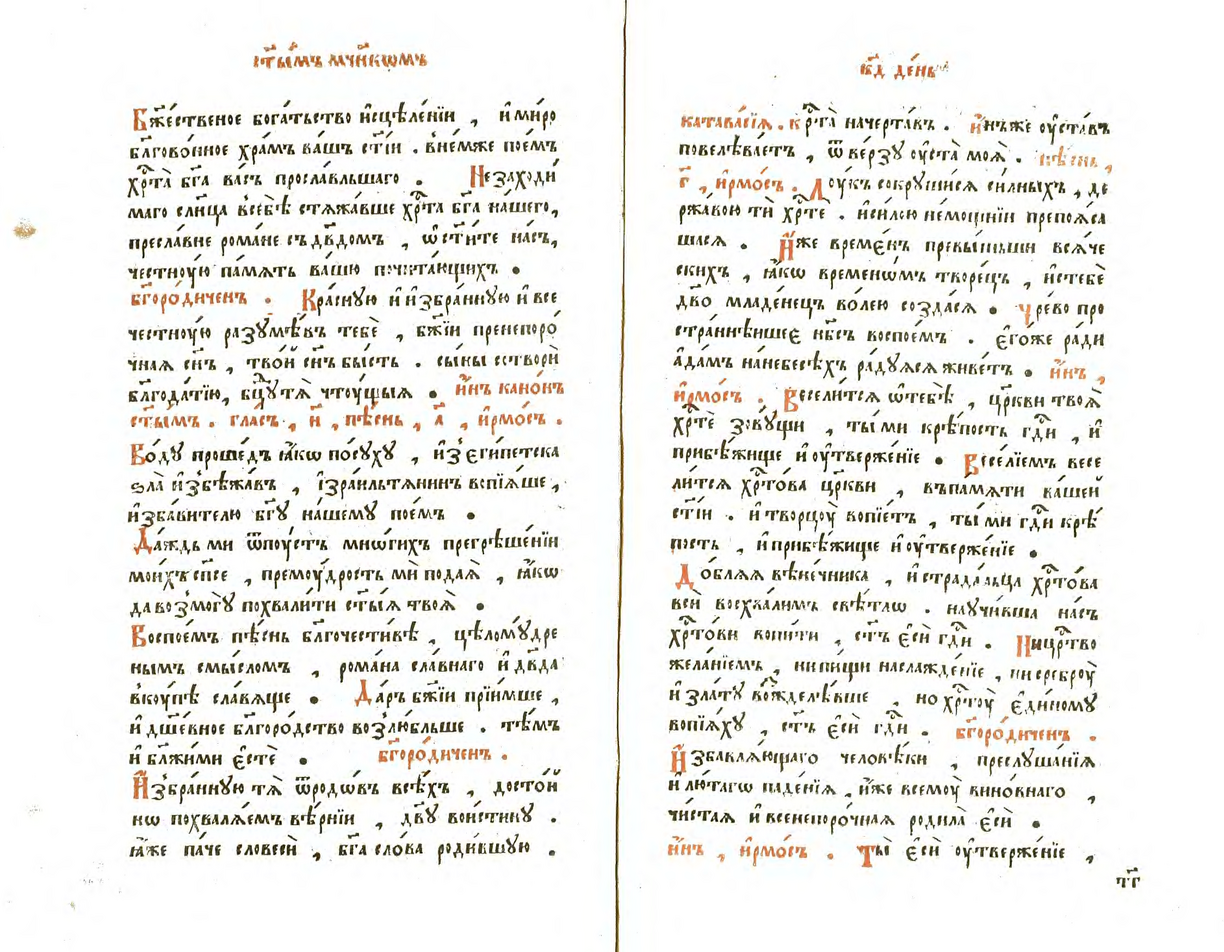 ст҃ы́мъ мч҃нкѡмъ
Бж҃е́ственое бога́тьство и҆сцѣле́нїи , и҆ ми́ро
бл҃гово́нное хра́мъ ва́шъ ст҃і́и . вне́мже пое́мъ
хрⷭ҇та̀ бг҃а ва́съ просла́вльшаго . Незаходи́
маго сл҃нца всебѣ̀ стѧжа́вше хрⷭ҇та бг҃а на́шего ,
пресла́вне рома́не съ дв҃домъ , ѡ҆ст҃и́те на́съ ,
честну́ю па́мѧть ва́шю почита́ющихъ .
бг҃оро́диченъ . Кра́сную и҆ и҆збра́нную и҆ все
честну́ю разꙋмѣ́въ тебѐ , бж҃їи пренепоро́
чнаѧ сн҃ъ , тво́й сн҃ъ бы́сть . сы́ны сотвори́
бл҃года́тїю , бц҃ꙋ тѧ̀ чтꙋ́щыѧ . и҆́нъ кано́нъ
ст҃ы́мъ . гла́съ , и҃ , пѣ́снь , а҃ , і҆рмо́съ .
Во́дꙋ проше́дъ ꙗ҆́кѡ посꙋ́хꙋ , и҆з̾ є҆гі́петска
ѕла̀ и҆збѣжа́въ , і҆зраильтѧнинъ вопїѧ́ше ,
и҆зба́вителю бг҃ꙋ на́шемꙋ пое́мъ .
Да́ждь ми ѿпꙋ́стъ мно́гихъ прегрѣше́нїи
мои́хъ сп҃се , премꙋ́дрость мѝ пода́ѧ , ꙗ҆́кѡ
да возмогꙋ̀ похвали́ти ст҃ы́ѧ твоѧ̀ .
Воспое́мъ пѣ́снь бл҃гочести́вѣ , цѣломꙋ́дре
нымъ смы́сломъ , рома́на сла́внаго и҆ дв҃да
вкꙋ́пѣ сла́вѧще . Да́ръ бж҃їи прїи́мше ,
и҆ дш҃е́вное бл҃горо́дство возлю́бльше . тѣ́мъ
и҆ бл҃же́ми є҆стѐ . бг҃оро́диченъ .
И҆збра́нную тѧ̀ ѿ родѡ́въ всѣ́хъ , досто́й
нѡ похвалѧ́емъ вѣ́рнїи , дв҃ꙋ вои́стинꙋ .
ꙗ҆́же па́че словесѝ , бг҃а сло́ва роди́вшую .
к҃д де́нь
катава́сїѧ . крⷭ҇та̀ начерта́въ . и҆́нъже ᲂу҆ста́въ
повелѣва́етъ , ѿве́рзꙋ ᲂу҆ста̀ моѧ̀ . пѣ́снь ,
г҃ , і҆рмо́съ . Лꙋ́къ сокрꙋши́сѧ си́лныхъ , де
ржа́вою тѝ хрⷭ҇тѐ . и҆ си́лою не́мощнїи препоѧ́са
шасѧ . И҆́же време́нъ превы́шьши всѧ́че
скихъ , ꙗ҆́кѡ временѡ́мъ творе́цъ , и҆стебѐ
дв҃о младе́нецъ во́лею созда́сѧ . чре́во про
стра́ннѣишее нб҃съ воспое́мъ . є҆гѡ́же ра́ди
а҆да́мъ нанебесѣ́хъ ра́дꙋѧсѧ живе́тъ . и҆́нъ ,
і҆рмо́съ . Весели́тсѧ ѡ҆тебѣ̀ , цр҃кви твоѧ̀
хрⷭ҇тѐ зовꙋ́щи , ты́ ми крѣ́пость гдⷭ҇и , и҆
прибѣ́жище и҆ ᲂу҆твержде́нїе . Весе́лїемъ весе
ли́тсѧ хрⷭ҇то́ва цр҃кви , въпа́мѧти ва́шей
ст҃і́и . и҆ творцꙋ̀ вопїе́тъ , ты́ ми гдⷭ҇и крѣ́
пость , и҆ прибѣ́жище и҆ ᲂу҆тверже́нїе .
До́блѧѧ вѣне́чника , и҆ страда́льца хрⷭ҇то́ва
всѝ восхва́лимъ свѣ́тлѡ . наꙋчи́вша на́съ
хрⷭ҇то́ви вопи́ти , ст҃ъ є҆сѝ гдⷭ҇и . Ницрⷭ҇тво
жела́нїемъ , нипи́щи наслажде́нїе , нисребрꙋ̀
и҆ зла́тꙋ вожделѣ́вше , но хрⷭ҇тꙋ̀ є҆ди́номꙋ
вопїѧ́хꙋ , ст҃ъ є҆сѝ гдⷭ҇и . бг҃оро́диченъ .
И҆збавлѧ́ющаго человѣ́ки , преслꙋша́нїѧ
и҆ лю́тагѡ паде́нїѧ , и҆́же всемꙋ̀ вино́внаго ,
чи́стаѧ и҆ всенепоро́чнаѧ родила̀ є҆сѝ .
и҆́нъ , і҆рмо́съ . Ты̀ є҆сѝ ᲂу҆тверже́нїе ,
тг҃